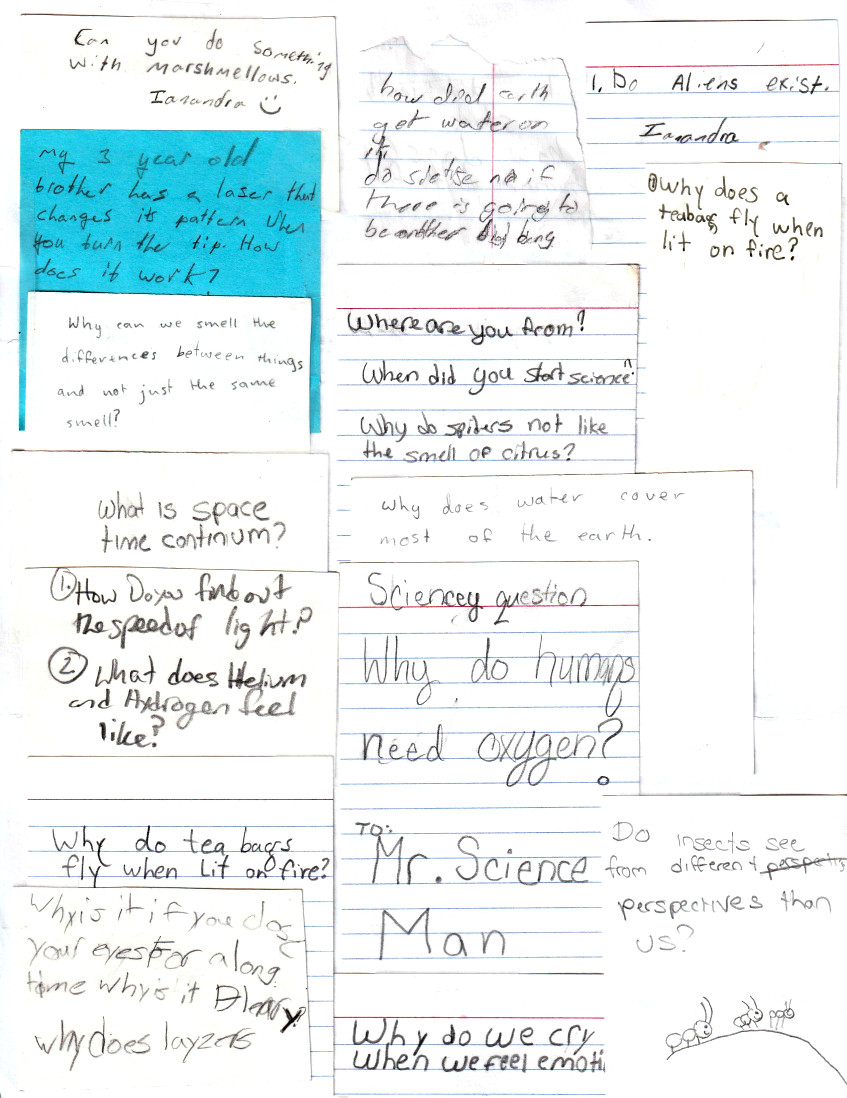 Can you do something
with marshmellows.
Ianandra
My 3 year old
brother has a laser that
changes its pattern when
you turn the tip. How
does it work?
Why can we smell the
differences between things
and not just the same
smell?
What is space
time continum?
1. How Do you find out
the speed of light?
2 What does Helium
and Hydrogen feel
like?
Why do tea bags
fly when lit on fire?
Why is it if you close
your eyes for a long
time why is it Bleary
why does layzers
how did earth
get water on
it
if
there is going to
be another bang
Where are you from?
When did you start science?
Why do spiders not like
the smell of citrus?
why does water cover
most of the earth.
Sciencey question
Why do humans
need oxygen?
TO:
Mr. Science
Man
Why do we cry
when we feel emoti
1. Do Aliens exist.
Ianandra
1 Why does a
teabag fly when
lit on fire?
Do insects see
from different perspectiv
perspectives than
us?